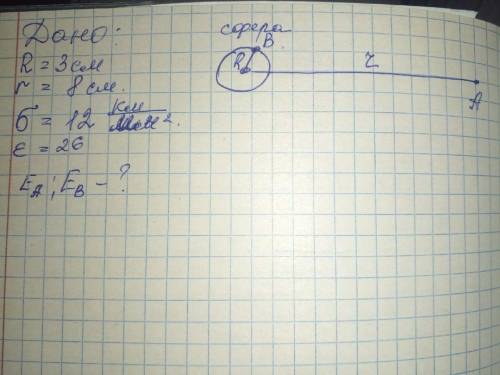 Дано:
R = 3 см
r = 8 см.
σ = 12 км
ε = 26
E_A; E_B - ?
сфера
B
R
r
A